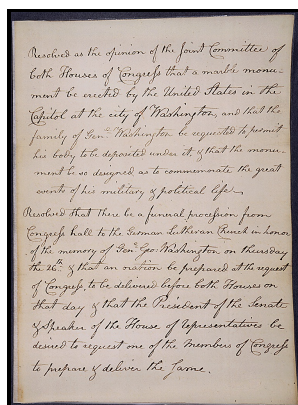 Resolved as the opinion of the Joint Committee of
both Houses of Congress that a marble monu-
ment be erected by the United States in the
Capitol at the city of Washington, and that the
family of Genl. Washington be requested to permit
his body to be deposited under it, & that the monu-
ment be so designed as to commemorate the great
events of his military & political life.
Resolved that there be a funeral procession from
Congress hall to the German Lutheran Church in honor
of the memory of Genl. Geo: Washington on thursday
the 26th. & that an oration be prepared at the request
of Congress, to be delivered before both Houses on
that day & that the President of the Senate
& Speaker of the House of Representatives be
desired to request one of the Members of Congress
to prepare & deliver the Same.